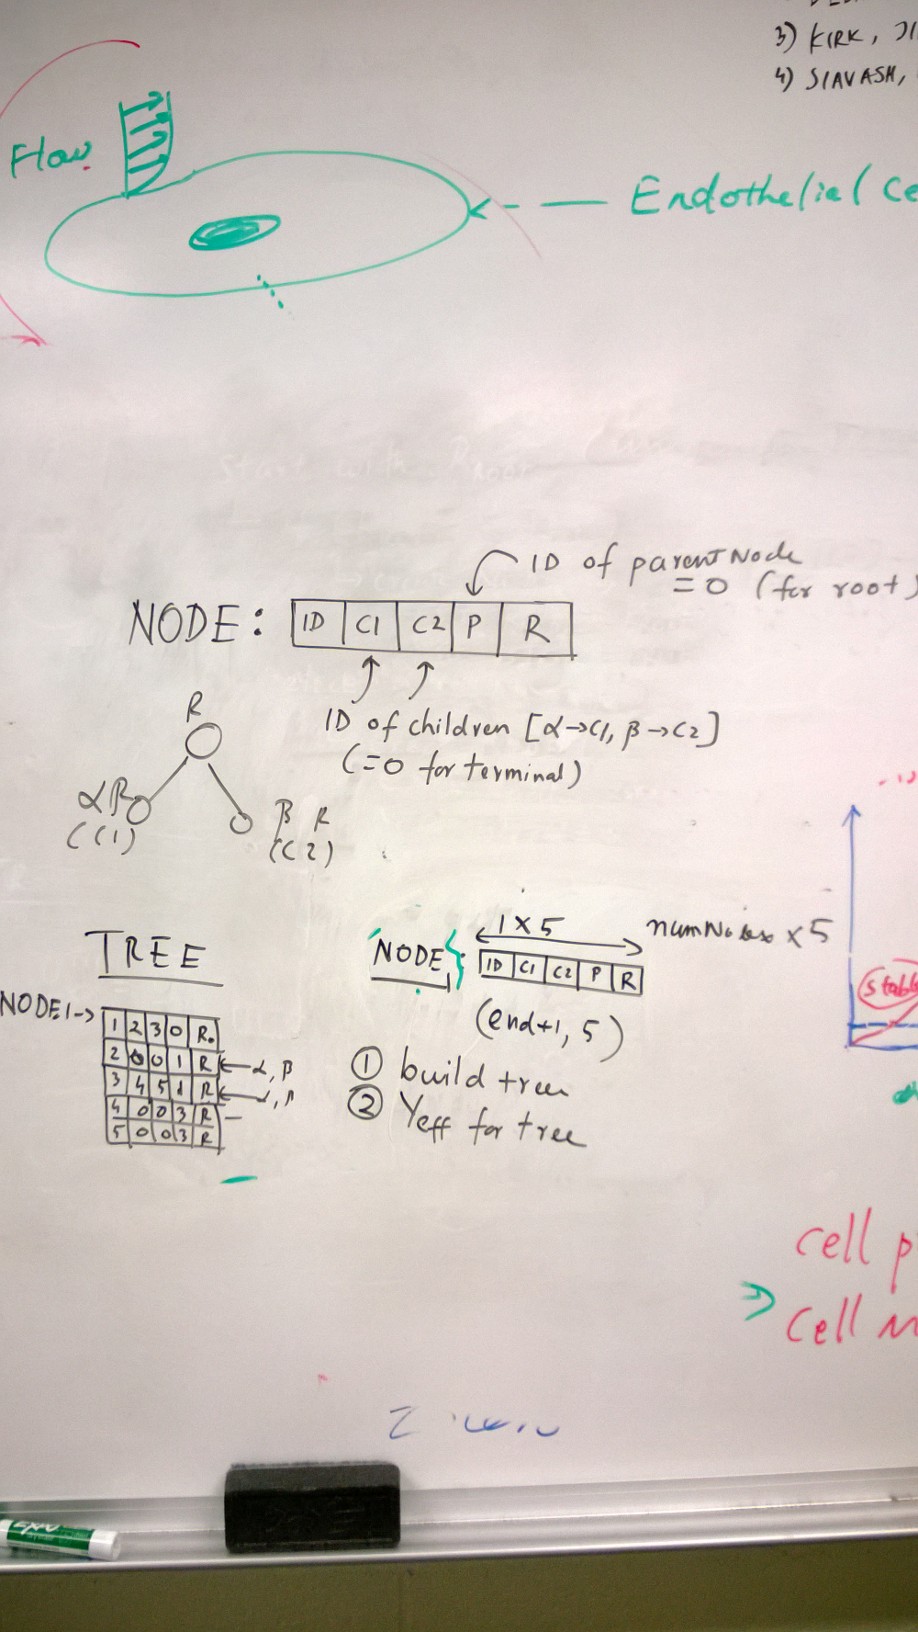 3) KIRK, JI
4) SIAVASH,
Flow
Endothelial Ce
Start with Root
ID of parent Node
=0 (for root)
NODE: ID C1 C2 P R
ID of children [α→C1, β→C2]
(=0 for terminal)
R
αR
(C1)
β R
(C2)
TREE
NODE 1->
1 2 3 0 R
2 0 0 1 R ← α, β
3 4 5 1 R
4 0 0 3 R
5 0 0 3 R
1 X 5
numNodes x 5
NODE: ID C1 C2 P R
(end+1, 5)
① build tree
② Yeff for tree
stabl
cell p
cell m
EXPO